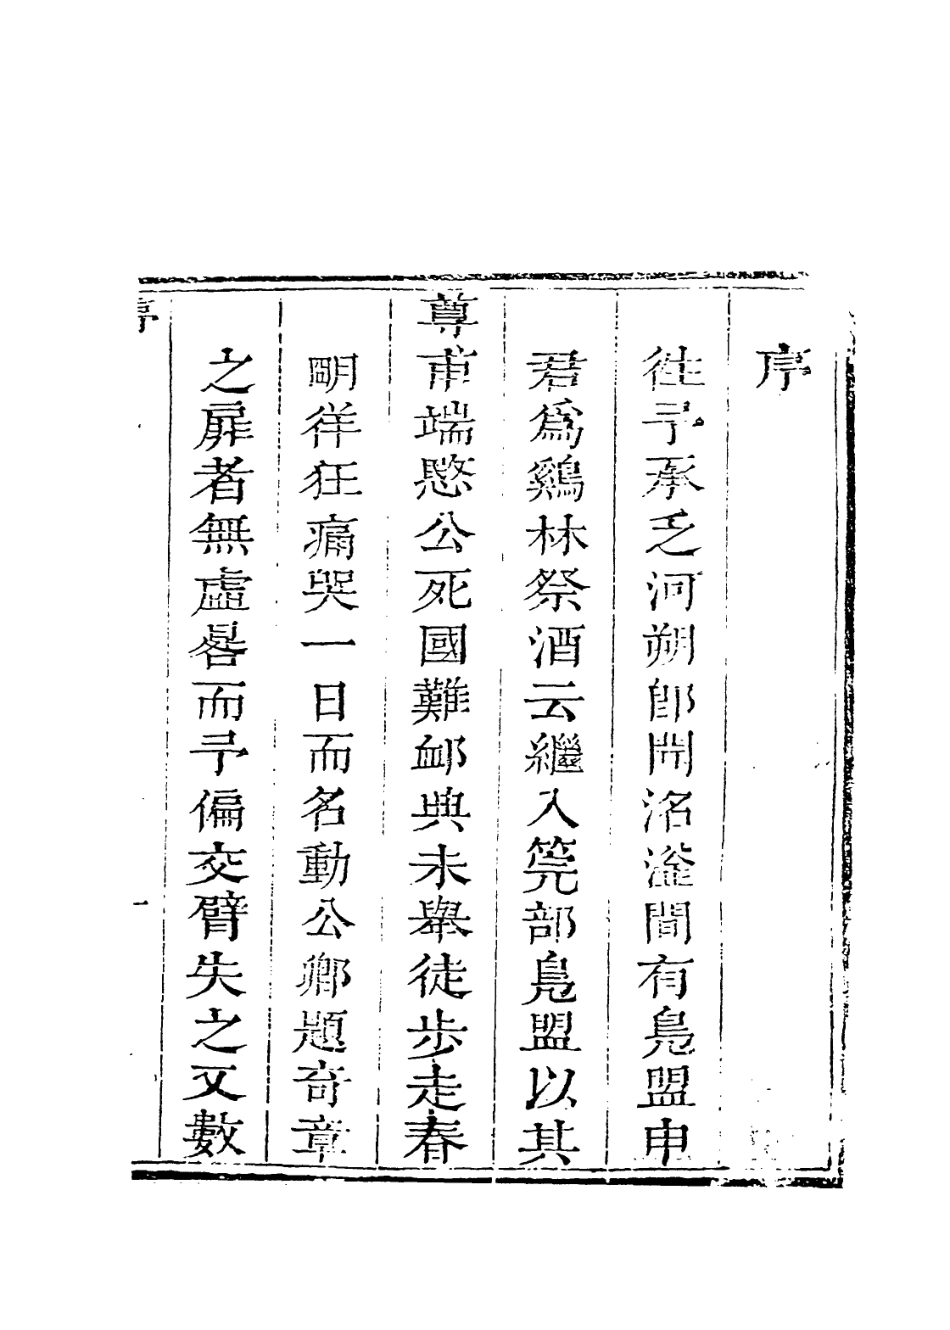 序
往予承乏河朔卽聞洺滏間有鳧盟申
君爲鷄林祭酒云繼入筦部鳧盟以其
尊甫端愍公死國難卹典未舉徒步走春
明徉狂痛哭一日而名動公卿題奇章
之扉者無虛晷而予偏交臂失之又數
序
一